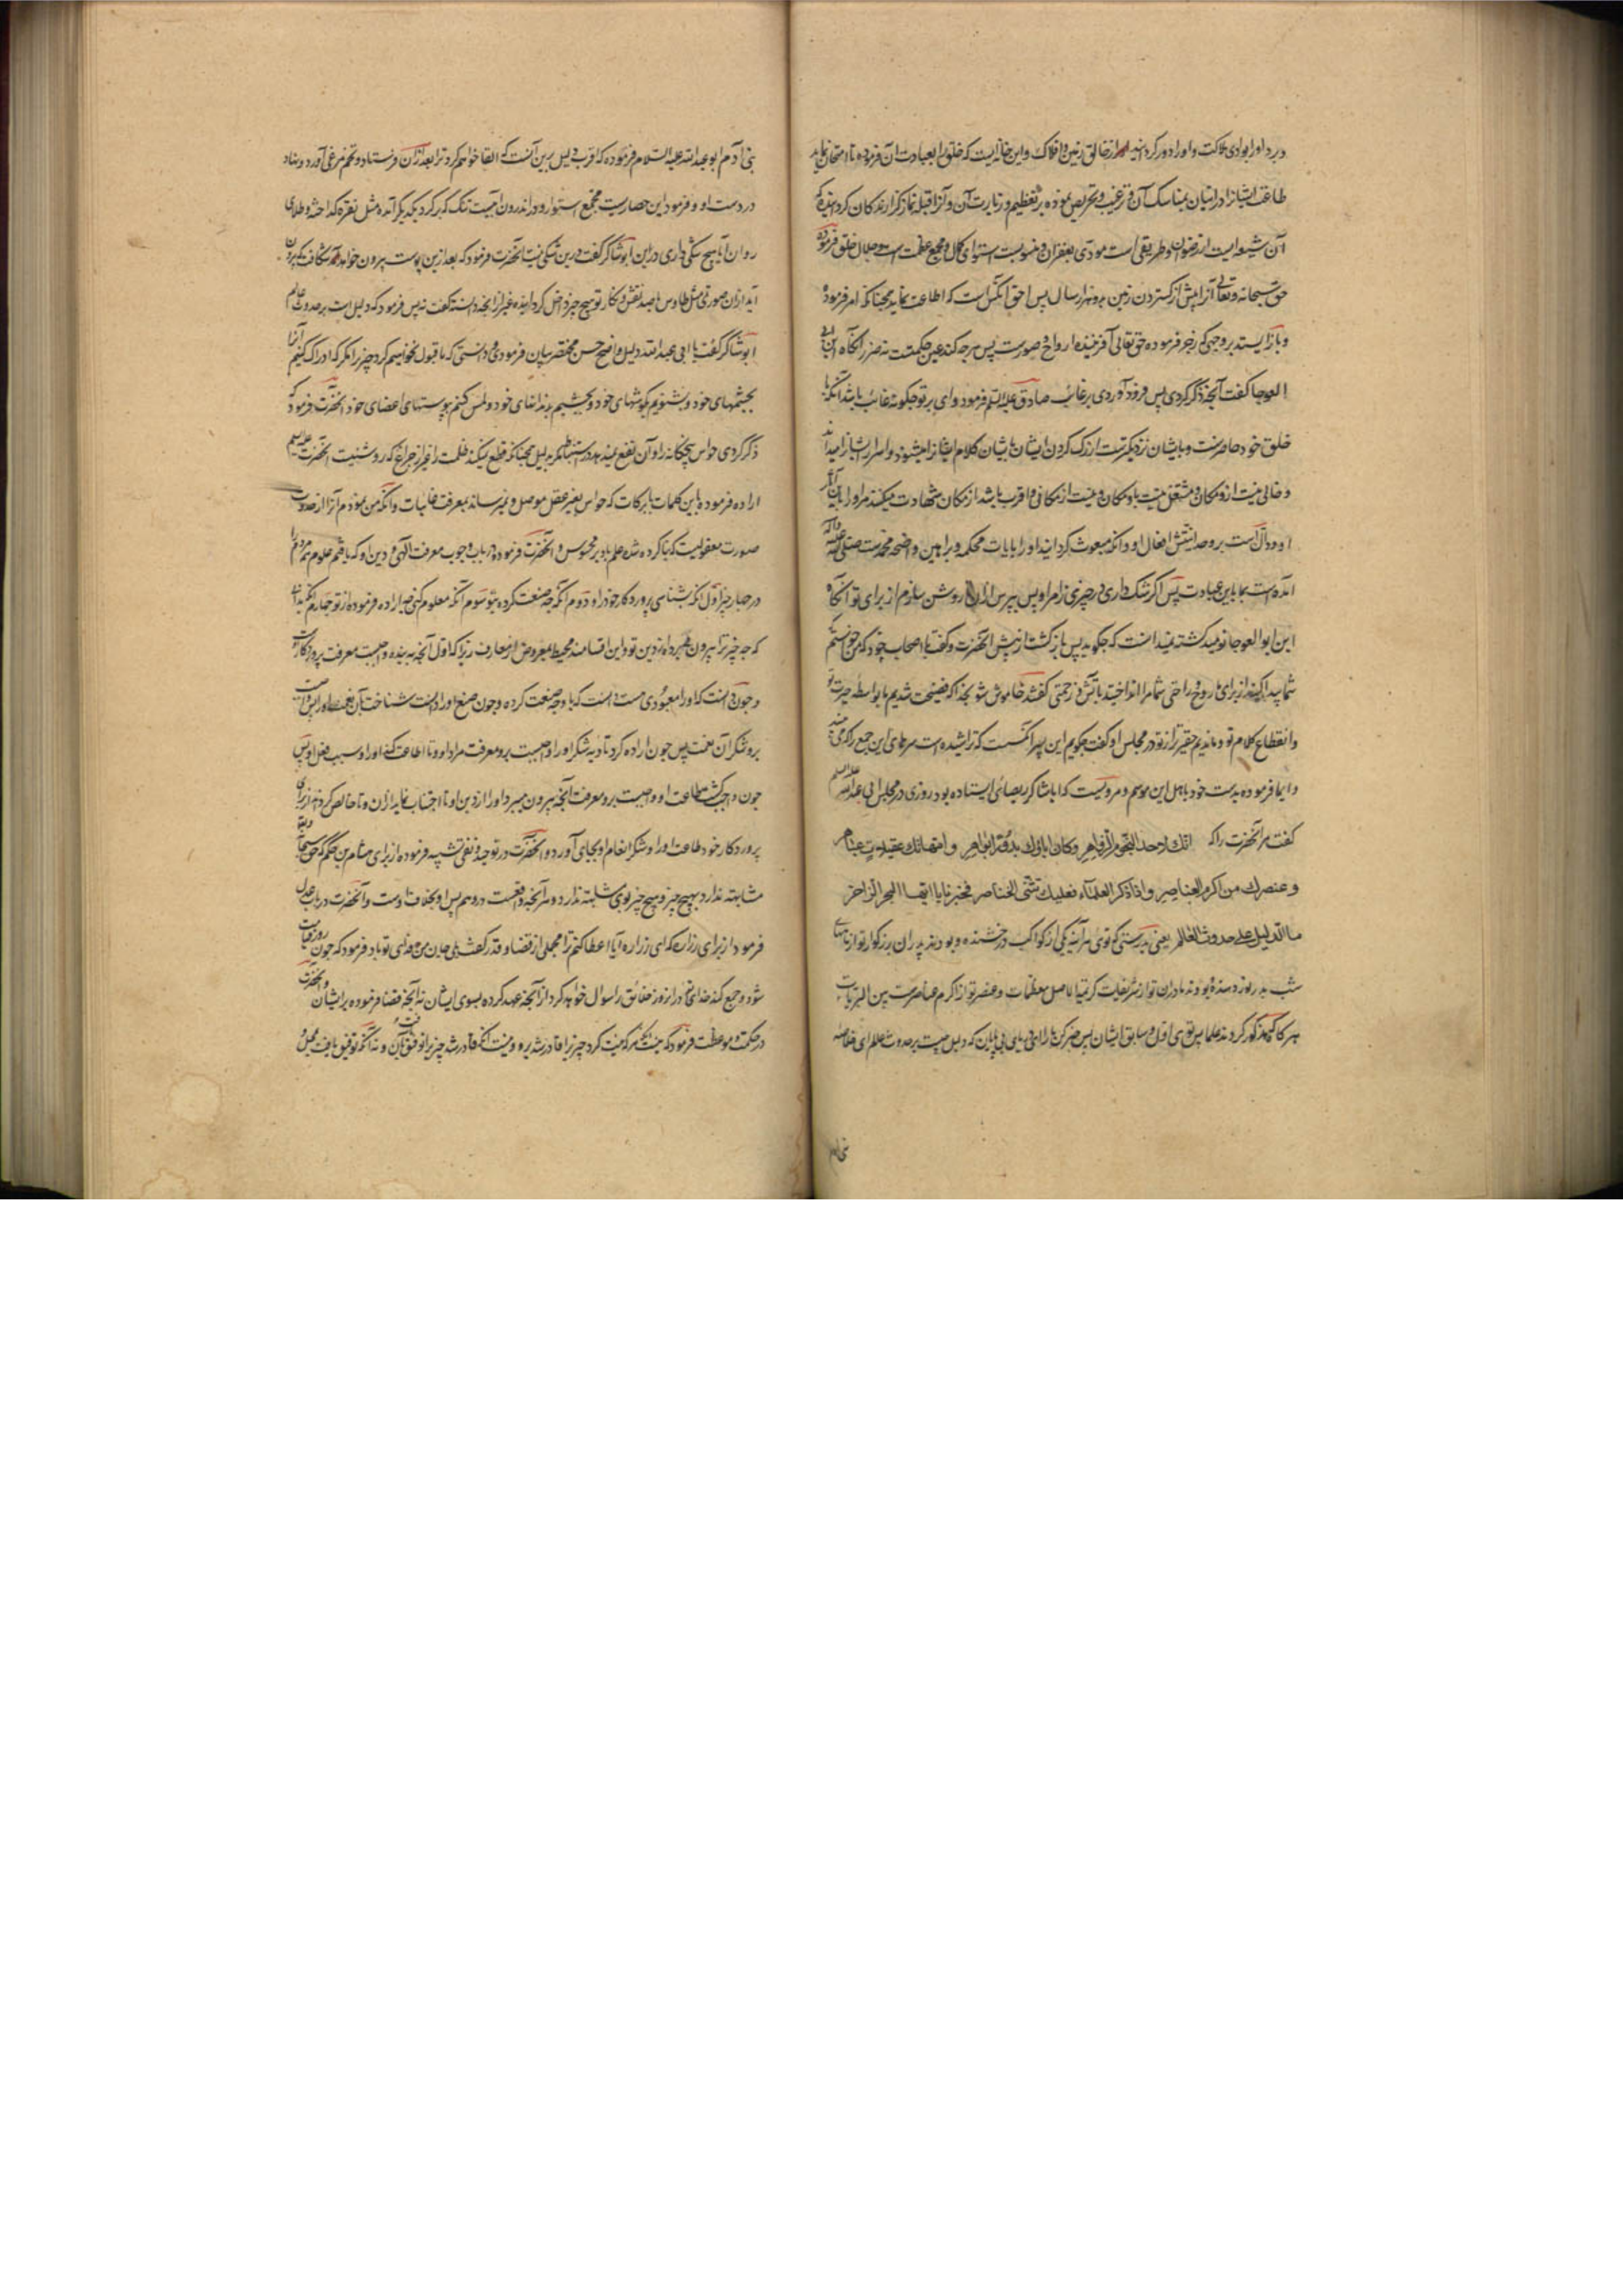 در برد او را بوادی هلاکت و او را دور کرداند از خالق زمین و افلاک و این خانه ایست که خلق را بعبادت آن فرموده تا امتحان نماید
طاعت ایشانرا در اتیان بمناسک آن و ترغیب و تحریص نموده بر تعظیم و زیارت آن و آنرا قبله نماز گزارندکان کردانیده که
آن شعبه ایست از رضوان او و طریقی است مودّی بغفران او منسوبست استوای کمال و مجمع عظمت است و جلال خلق فرموده
حق سبحانه و تعالی آنرا پیش از گستردن زمین بدو هزار سال پس احق انکس است که اطاعت نماید بجنانکه امر فرموده
و باز ایستد بر وجهی که زجر فرموده حق تعالی آفریننده ارواح و صورست پس هرجه کند عین حکمتست نه ضرر آنکاه ابن ابی
العوجا گفت آنجه ذکر کردی پس فرود آوردی بر غائب صادق علیه السلم فرمود وای بر تو جکونه غائب باشد آنکه با
خلق خود حاضرست و بایشان نزدیکترست از رک کردن ایشان کلام ایشانرا میشنود و اسرار ایشانرا میداند
و خالی نیست ازو مکان و مشتغل نیست باو مکان و نیست از مکانی اقرب باشد از مکان شهادت میکند مر او را باین آثار
او و دالّ است بر وحدانیتش افعال او و آنکه مبعوث گردانید او را بآیات محکمه و براهین واضحه محمدست صلی الله علیه وآله
آمده است بما باین عبادت پس اکر شک داری در جیزی از امر او پس بپرس از آن تا روشن سازم از برای تو آنکاه
ابن ابو العوجا نومید گشته ندانست که جکوید پس باز گشت از پیش آنحضرت و گفت با اصحاب خود که من خواستم
شما پیدا کنید از برای ما روح و راحتی شما مرا انداختید بآتش و زحمتی گفتند خاموش شو بخدا که فضیحت شدیم ما بواسطه حیرت تو
و انقطاع کلام تو و ندیدیم حقیرتر از تو در مجلس او گفت جکویم این پسر آنکسیست که تراشیده است سرهای این جمع را که می بینید
و ایما فرموده بدست خود باهل این موسم و مرویست که ابا شاکر دیصانی ایستاده بود روزی در مجلس ابی عبدالله علیه السلم
گفت مر آنحضرت را که انك لاحد النجوم الزواهر وكان اباؤك بدورًا بواهر و امهاتك عقيلات عباهر
و عنصرك من اكرم العناصر و اذا ذكر العلماء فعليك تثنى الخناصر فخبرنا يا ايها البحر الزاخر
ما الدليل على حدوث العالم یعنی بدرستی که تویی هرآینه یکی از کواکب درخشنده و بودند پدران بزرکوار تو ازماههای
شب بدر نور دهنده و بودند مادران تو از شریفات کریمات اصل معظمات و عنصر تو از اکرم عناصرست بین البریات
هر کاه که مذکور کردند علما پس تویی اول و سابق ایشان پس خبر کن ما را ای دریای بی پایان که دلیل جیست بر حدوث عالم ای خلاصه
بنی آدم
بنی آدم ابو عبدالله علیه السلام فرموده که اقرب دلیل برین آنست که القا خواهم کرد ترا بعد از آن فرستاد و تخم مرغی آورد و نهاد
در دست او و فرمود این حصاریست مجتمع استوار و در اندرون آنیست تنک که بر کرد یکدیگر آمده مثل نقره گداخته و طلای
روان آیا هیچ شکی داری در این ابو شاکر گفت درین شکی نیست آنحضرت فرمود که بعد ازین پوست بیرون خواهد آمد شکاف که بیرون
آید از آن صورتی مثل طاوس با صد نقش و نکار تو هیچ جیز داخل کردانیده غیر از آنجه دانسته گفت نه پس فرمود که دلیل است بر حدوث عالم
ابو شاکر گفت یا ابی عبدالله دلیل واضح حسن مختصر بیان فرمودی و دانستی که ما قبول نخواهیم کرد جیزی را مکر که ادراک کنیم آنرا
بجشمهای خود و بشنویم بکوشهای خود و بجشیم بمذاقهای خود و لمس کنیم بپوستهای اعضای خود آنحضرت فرمود که
ذکر کردی حواس پنجکانه را و آن نفع نمیدهد در استنباط مکر بدلیل همجنانکه قطع نمیکند ظلمت را بغیر از جراغ که روشنیست آنحضرت علیه السلم
اراده فرموده باین کلمات با برکات که حواس بغیر عقل موصل و نمیرساند بمعرفت غایبات و آنکه من نمودم آنرا از حدوث
صورت معقولیست که بنا کرده شده علم باو بر محسوس و آنحضرت فرموده در باب وجوب معرفت الهی و دین او که یافتم علوم مردم را
در جهار جیز اول آنکه بشناسی پروردکار خود را دوم آنکه جه صنعت کرده بتو سوم آنکه معلوم کنی جه اراده فرموده از تو جهارم آنکه بدانی
که جه جیز ترا بیرون میبرد از دین تو و این اقسامند محیط بمفروض از معارف زیرا که اول آنجه بر بنده واجبست معرفت پروردکار اوست
و جون دانست که او را معبودی هست دانست که با او جه صنعت کرده و جون صنع او را دانست شناخت بآن نعمت او را پس واجبست
برو شکر آن نعمت پس جون اراده کرد تادیه شکر او را واجبست برو معرفت مراد او تا اطاعت کند او را و بسبب فعل او پس
جون واجب شد طاعت او واجبست برو معرفت آنجه بیرون میبرد او را از دین او تا اجتناب نماید از آن و تا خالص کرداند از برای
پروردکار خود طاعت او را و شکر انعام او بجای آورد و آنحضرت در توحید و نفی تشبیه فرموده از برای هشام بن حکم که حق سبحانه وتعالی
مشابهت ندارد بهیج جیز و هیج جیز بوی مشابهت ندارد و هر آنجه واقعست در وهم پس او بخلاف اوست و آنحضرت در باب عدل
فرمود از برای زراره که ای زراره آیا اعطا کنم ترا مجملی از قضا و قدر گفت بلی جان من فدای تو باد فرمود که جون روز قیامت
شود و جمع کند خدایتعالی در آنروز خلائق را سوال خواهد کرد از آنجه عهد کرده بسوی ایشان نه آنجه قضا فرموده بر ایشان و آنحضرت
در حکمت و موعظت فرمود که نیست هر که نیت کرد جیزی را قادر شد برو و نیست آنکه قادر شد جیزی را توفیق یافت بآن و نه آنکه توفیق یافت بعمل